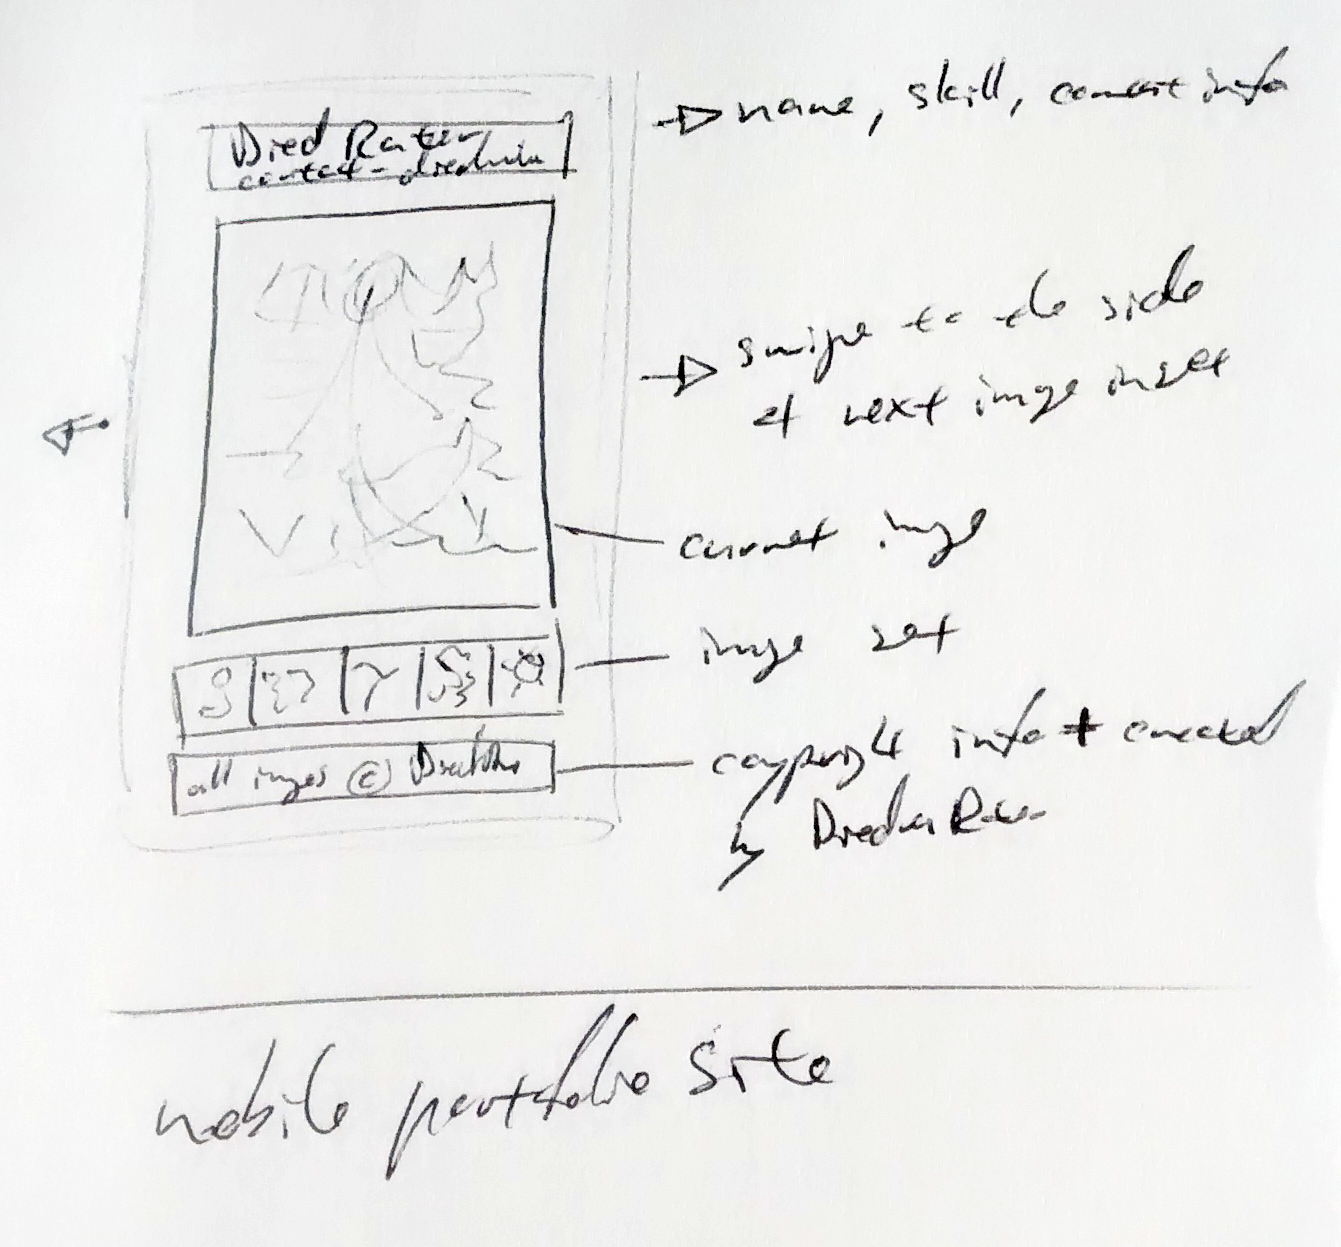 Died Rater
contact -
→ name, skill, contact info
swipe to the side
next image in set
current image
image set
all images ©
copyright info + created
by
mobile portfolio site